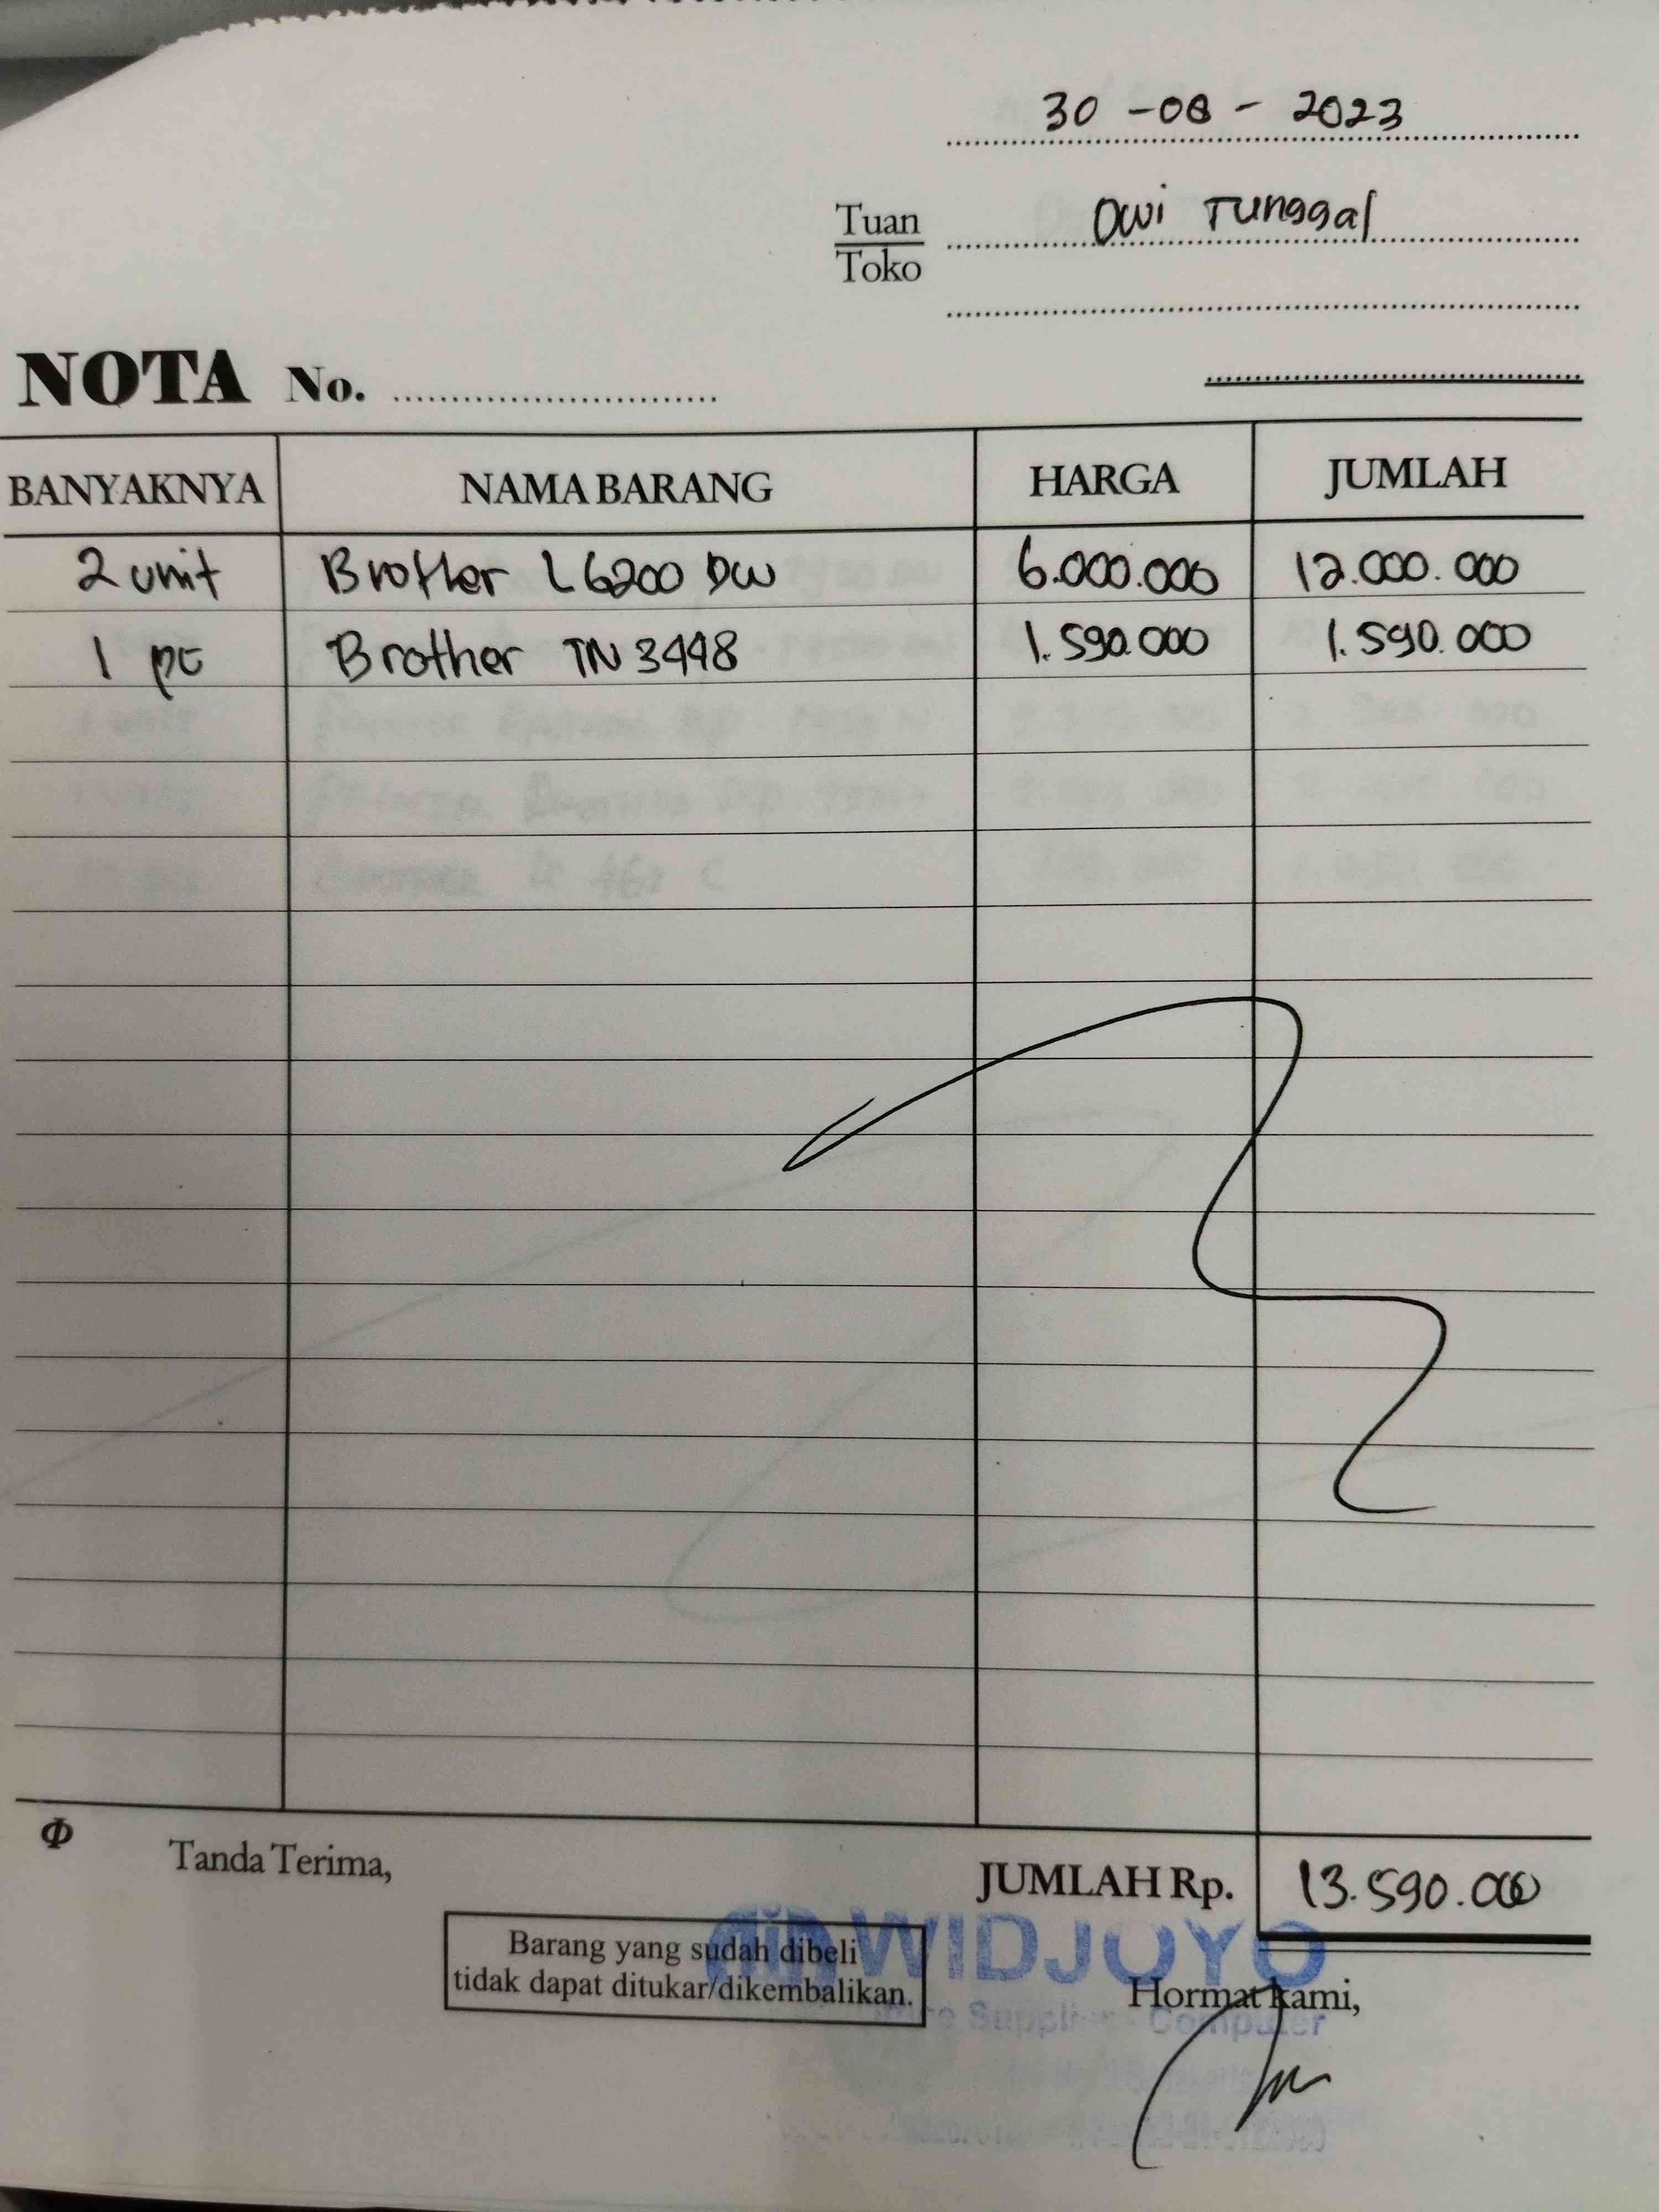 30 - 08 - 2023
Tuan
Toko
Dwi Tunggal
NOTA No.
BANYAKNYA NAMA BARANG HARGA JUMLAH
2 unit Brother L6200 DW 6.000.000 12.000.000
1 pc Brother TN 3448 1.590.000 1.590.000
Φ Tanda Terima,
JUMLAH Rp. 13.590.000
Barang yang sudah dibeli
tidak dapat ditukar/dikembalikan.
WIDJOYO
Hormat kami,
Computer